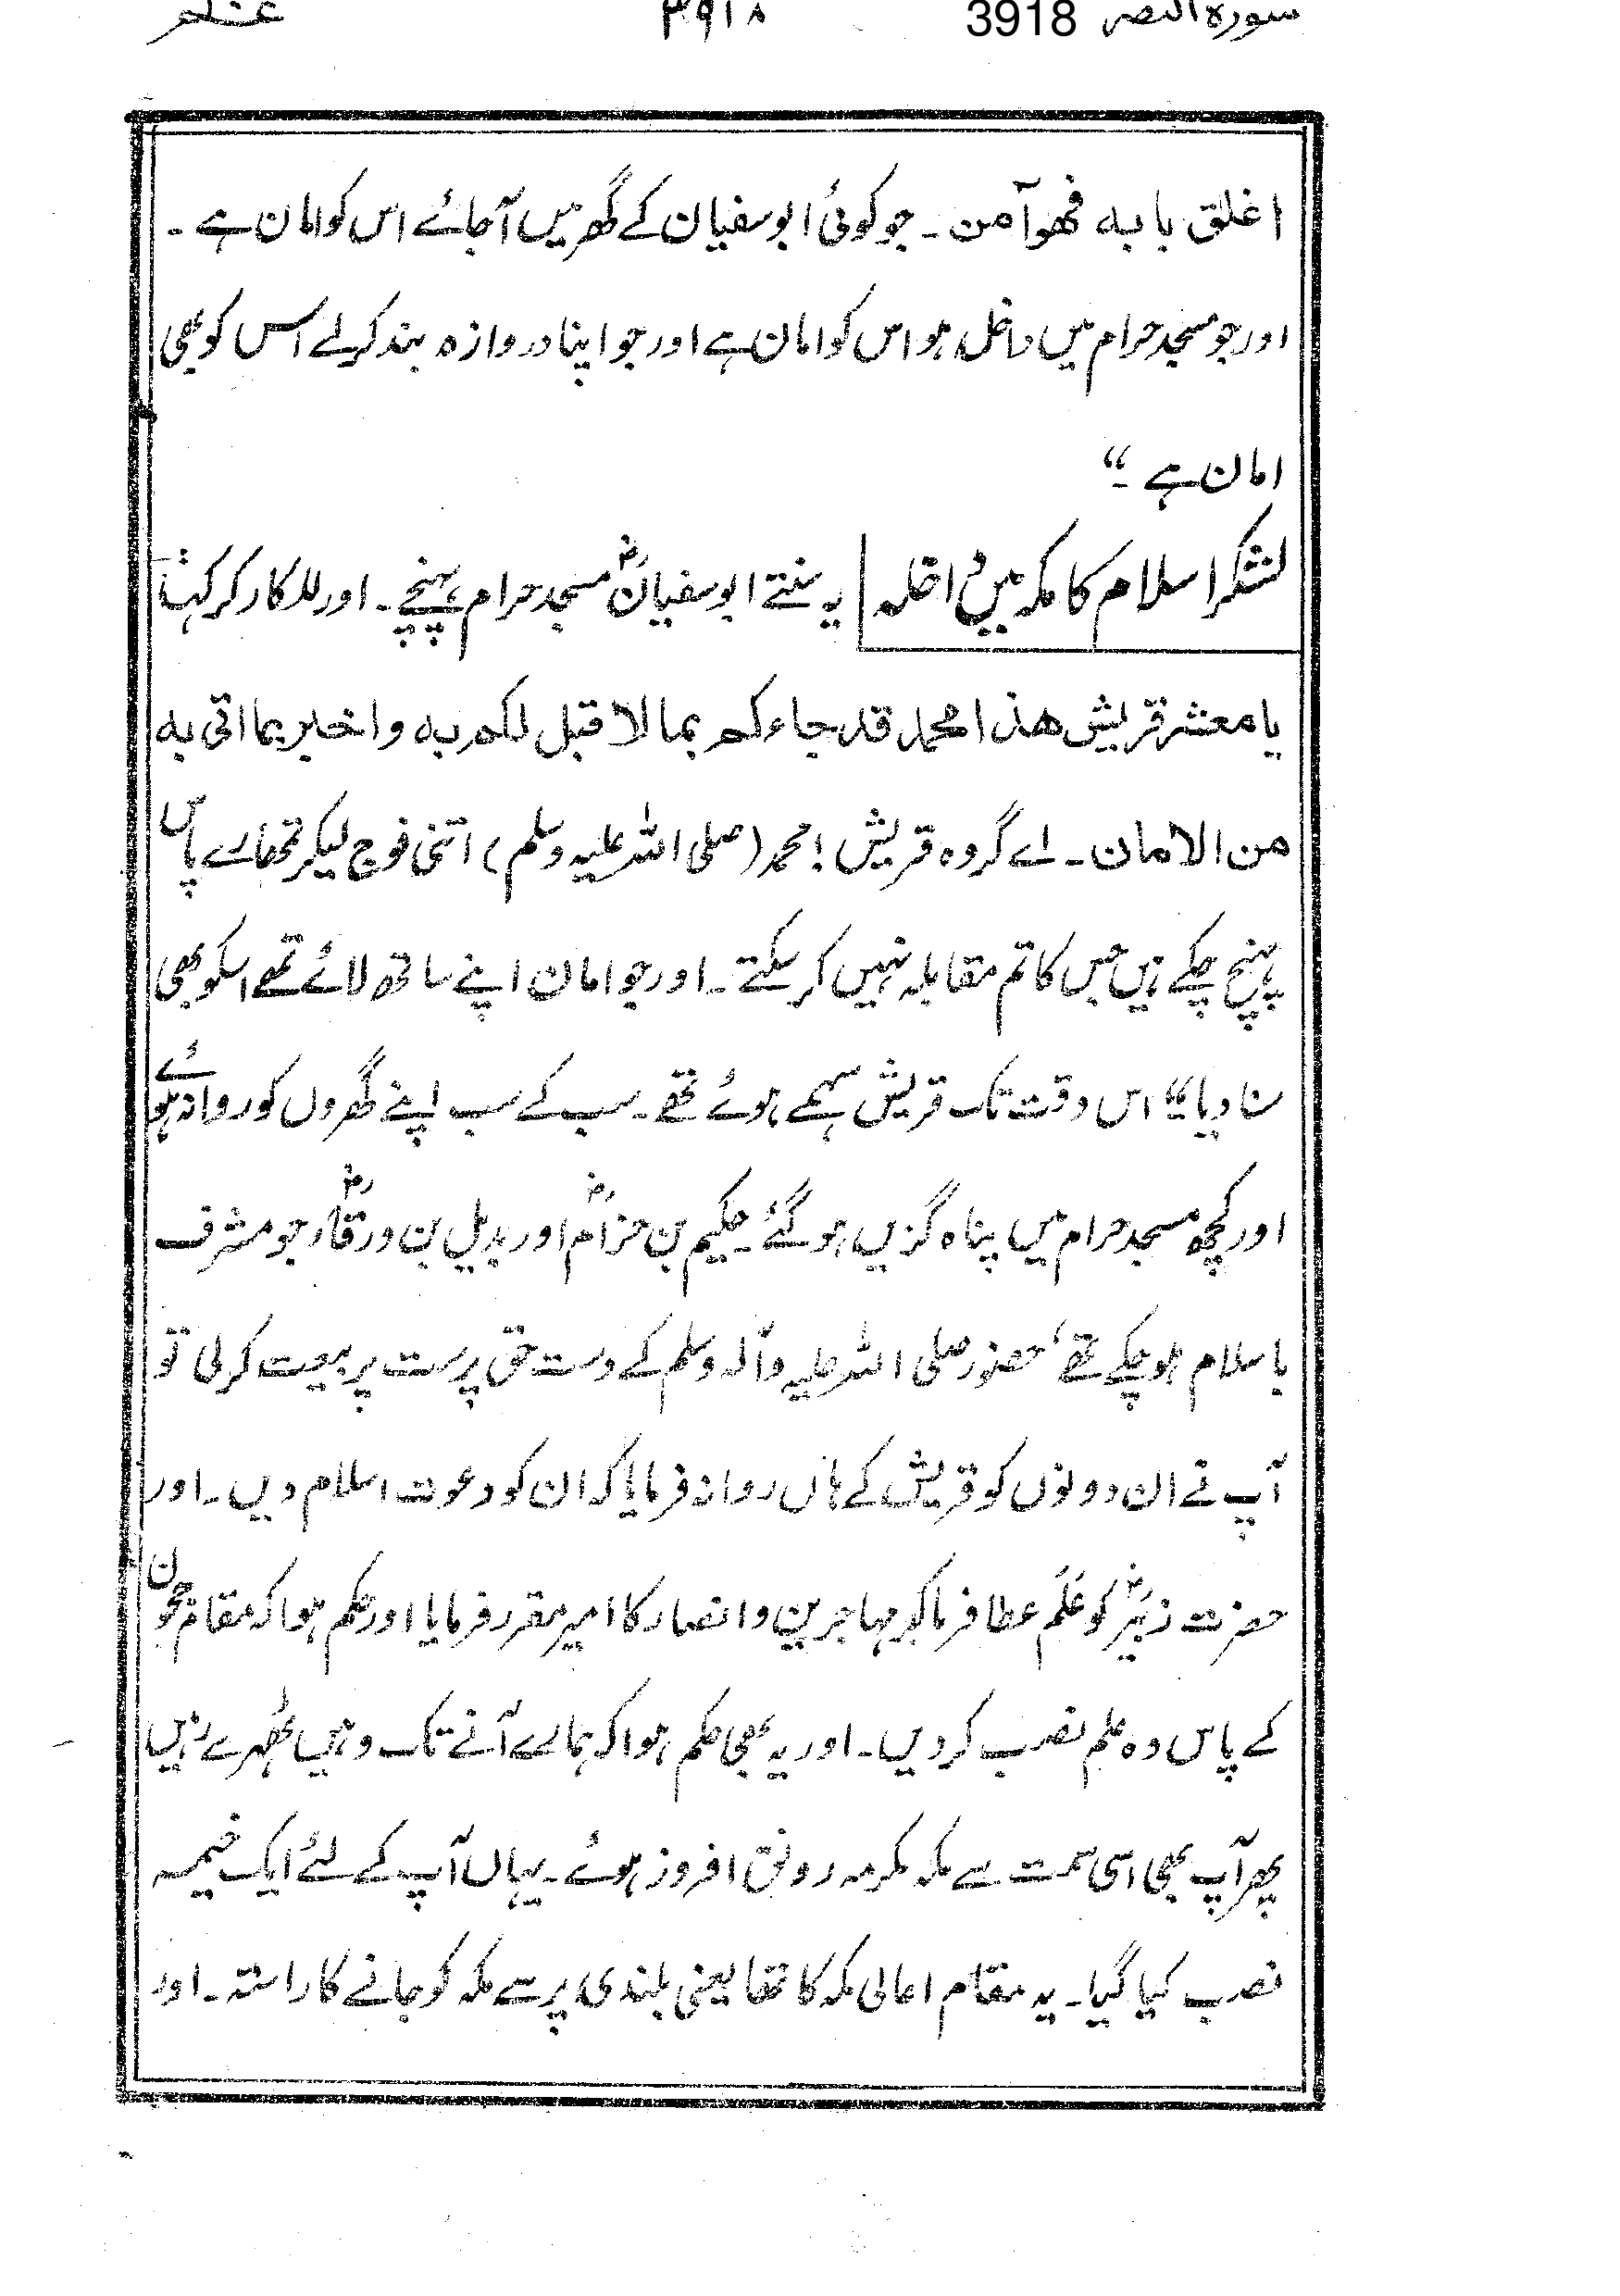 سورہ النصر 3918 ۳۹۱۸
اغلق بابه فهو آمن ۔ جو کوئی ابوسفیان کے گھر میں آجائے اس کو امان ہے ۔
اور جو مسجد حرام میں داخل ہو اس کو امان ہے اور جو اپنا دروازہ بند کرلے اس کو بھی
امان ہے ۔“
لشکر اسلام کا مکہ میں داخلہ | یہ سنتے ابوسفیانؓ مسجد حرام پہنچے ۔ اور للکار کر کہا
یا معشر قریش هذا محمد قد جاءکم بما لا قبل لکم به واخبر بما اتی به
من الامان ۔ اے گروہ قریش ! محمد (صلی اللہ علیہ وسلم) اتنی فوج لیکر تمھارے پاس
پہنچ چکے ہیں جس کا تم مقابلہ نہیں کر سکتے ۔ اور جو امان اپنے ساتھ لائے تھے اسکو بھی
سنا دیا “ اس وقت تک قریش سہمے ہوئے تھے ۔ سب کے سب اپنے گھروں کو روانہ ہوئے
اور کچھ مسجد حرام میں پناہ گزیں ہوگئے ۔ حکیم بن حزامؓ اور بدیل بن ورقاءؓ جو مشرف
باسلام ہو چکے تھے ، حضور صلی اللہ علیہ وآلہ وسلم کے دست حق پرست پر بیعت کرلی تو
آپ نے ان دونوں کو قریش کے ہاں روانہ فرمایا کہ ان کو دعوت اسلام دیں ۔ اور
حضرت زبیرؓ کو عَلَم عطا فرماکر مہاجرین و انصار کا امیر مقرر فرمایا اور حکم ہوا کہ مقام حجون
کے پاس وہ علم نصب کردیں ۔ اور یہ بھی حکم ہوا کہ ہمارے آنے تک وہیں ٹھہرے رہیں
پھر آپ بھی اسی سمت سے مکہ مکرمہ رونق افروز ہوئے ۔ یہاں آپ کے لئے ایک خیمہ
نصب کیا گیا ۔ یہ مقام اعالی مکہ کا تھا یعنی بلندی پر سے مکہ کو جانے کا راستہ ۔ اور